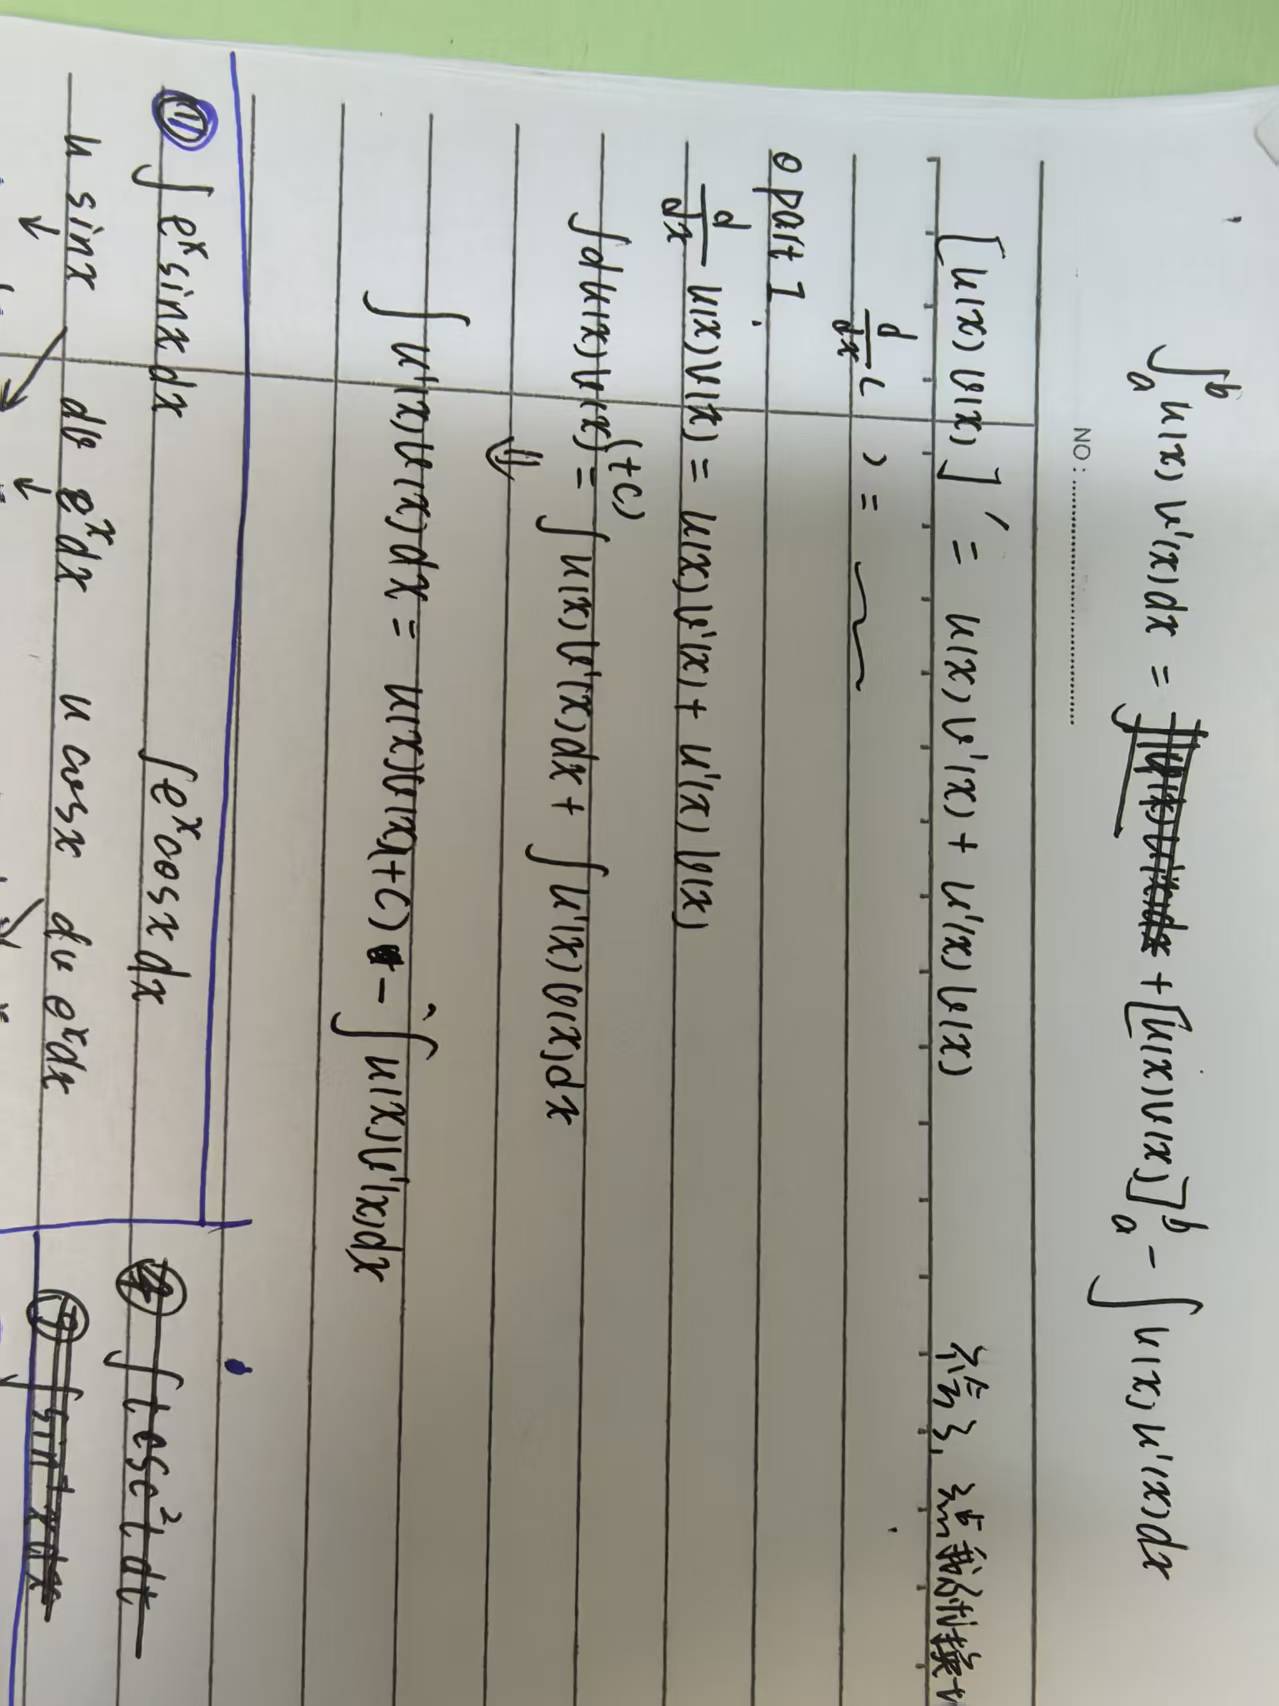 ∫ₐᵇ u(x) v'(x)dx = + [u(x)v(x)]ₐᵇ - ∫ v(x) u'(x)dx
NO:
[u(x) v(x)]' = u(x) v'(x) + u'(x) v(x)
d/dx ( ) =
part I
d/dx u(x)v(x) = u(x) v'(x) + u'(x) v(x)
∫du(x)v(x) (+C) = ∫u(x)v'(x)dx + ∫u'(x)v(x)dx
⇓
∫u'(x)v(x)dx = u(x)v(x)(+C) - ∫u(x)v'(x)dx
① ∫e^x sinx dx ∫e^x cosx dx ∫t csc²t dt
u sinx dv e^x dx u cosx dv e^x dx ∫sin⁻¹x dx